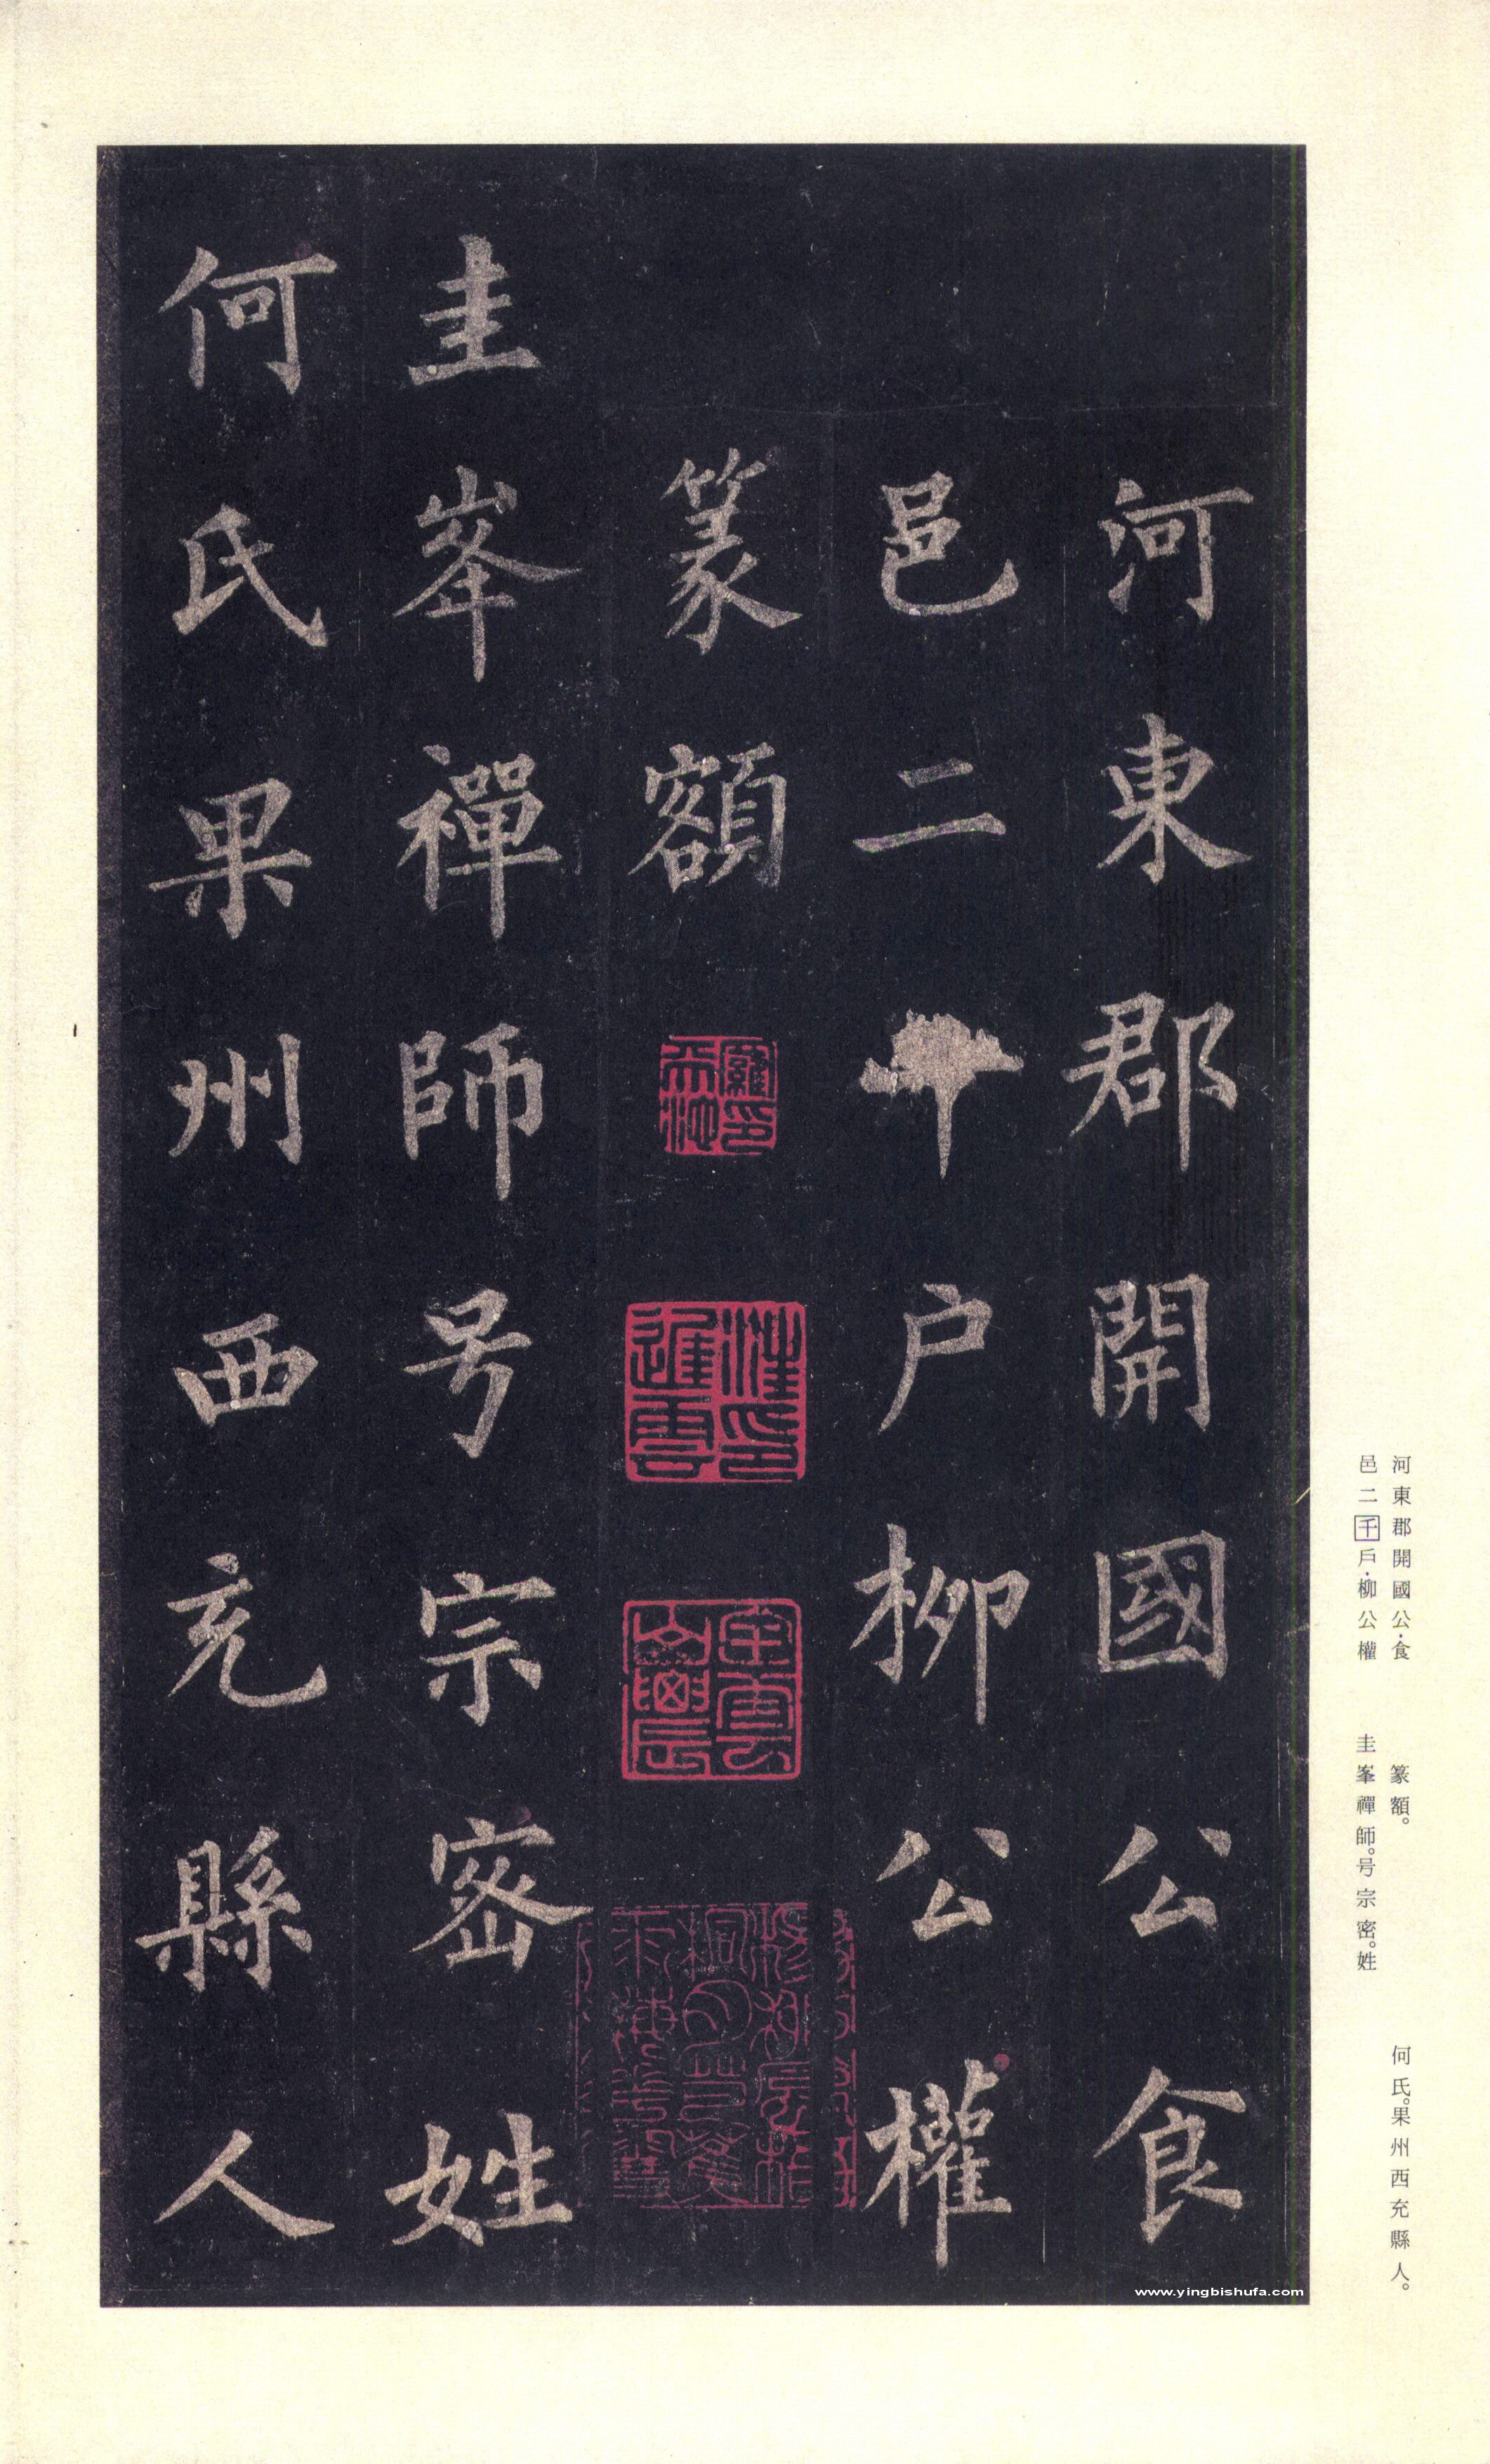 河東郡開國公食
邑二千戶柳公權
篆額
圭峯禪師号宗密姓
何氏果州西充縣人
河東郡開國公·食
邑二千戶·柳公權
篆額。
圭峯禪師。号宗密。姓
何氏。果州西充縣人。
www.yingbishufa.com